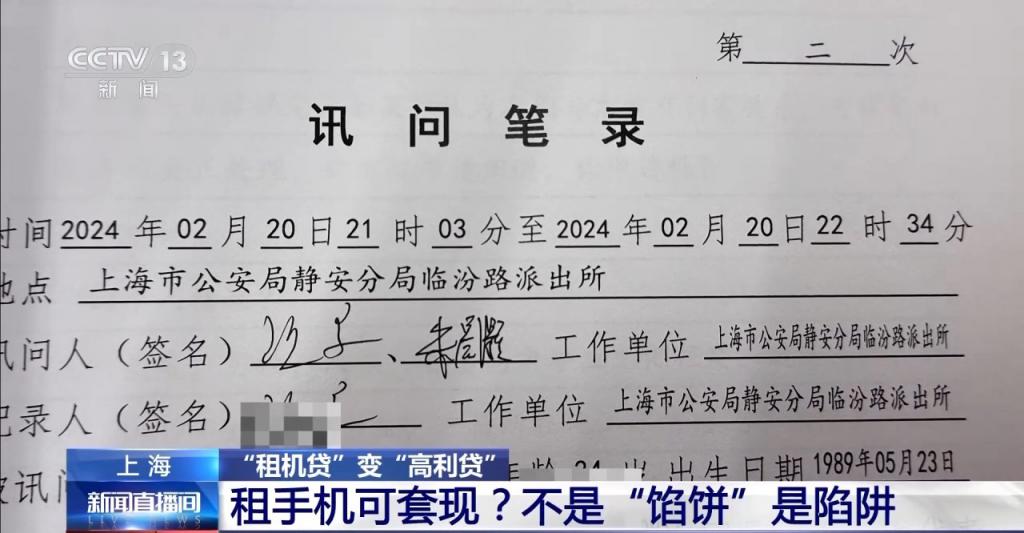 CCTV 13
新闻
第 二 次
讯 问 笔 录
时间 2024 年 02 月 20 日 21 时 03 分至 2024 年 02 月 20 日 22 时 34 分
地点 上海市公安局静安分局临汾路派出所
讯问人（签名） 、 工作单位 上海市公安局静安分局临汾路派出所
记录人（签名） 工作单位 上海市公安局静安分局临汾路派出所
被讯问 年龄 34 岁 出生日期 1989年05月23日
上海 “租机贷”变“高利贷”
新闻直播间 租手机可套现？不是“馅饼”是陷阱